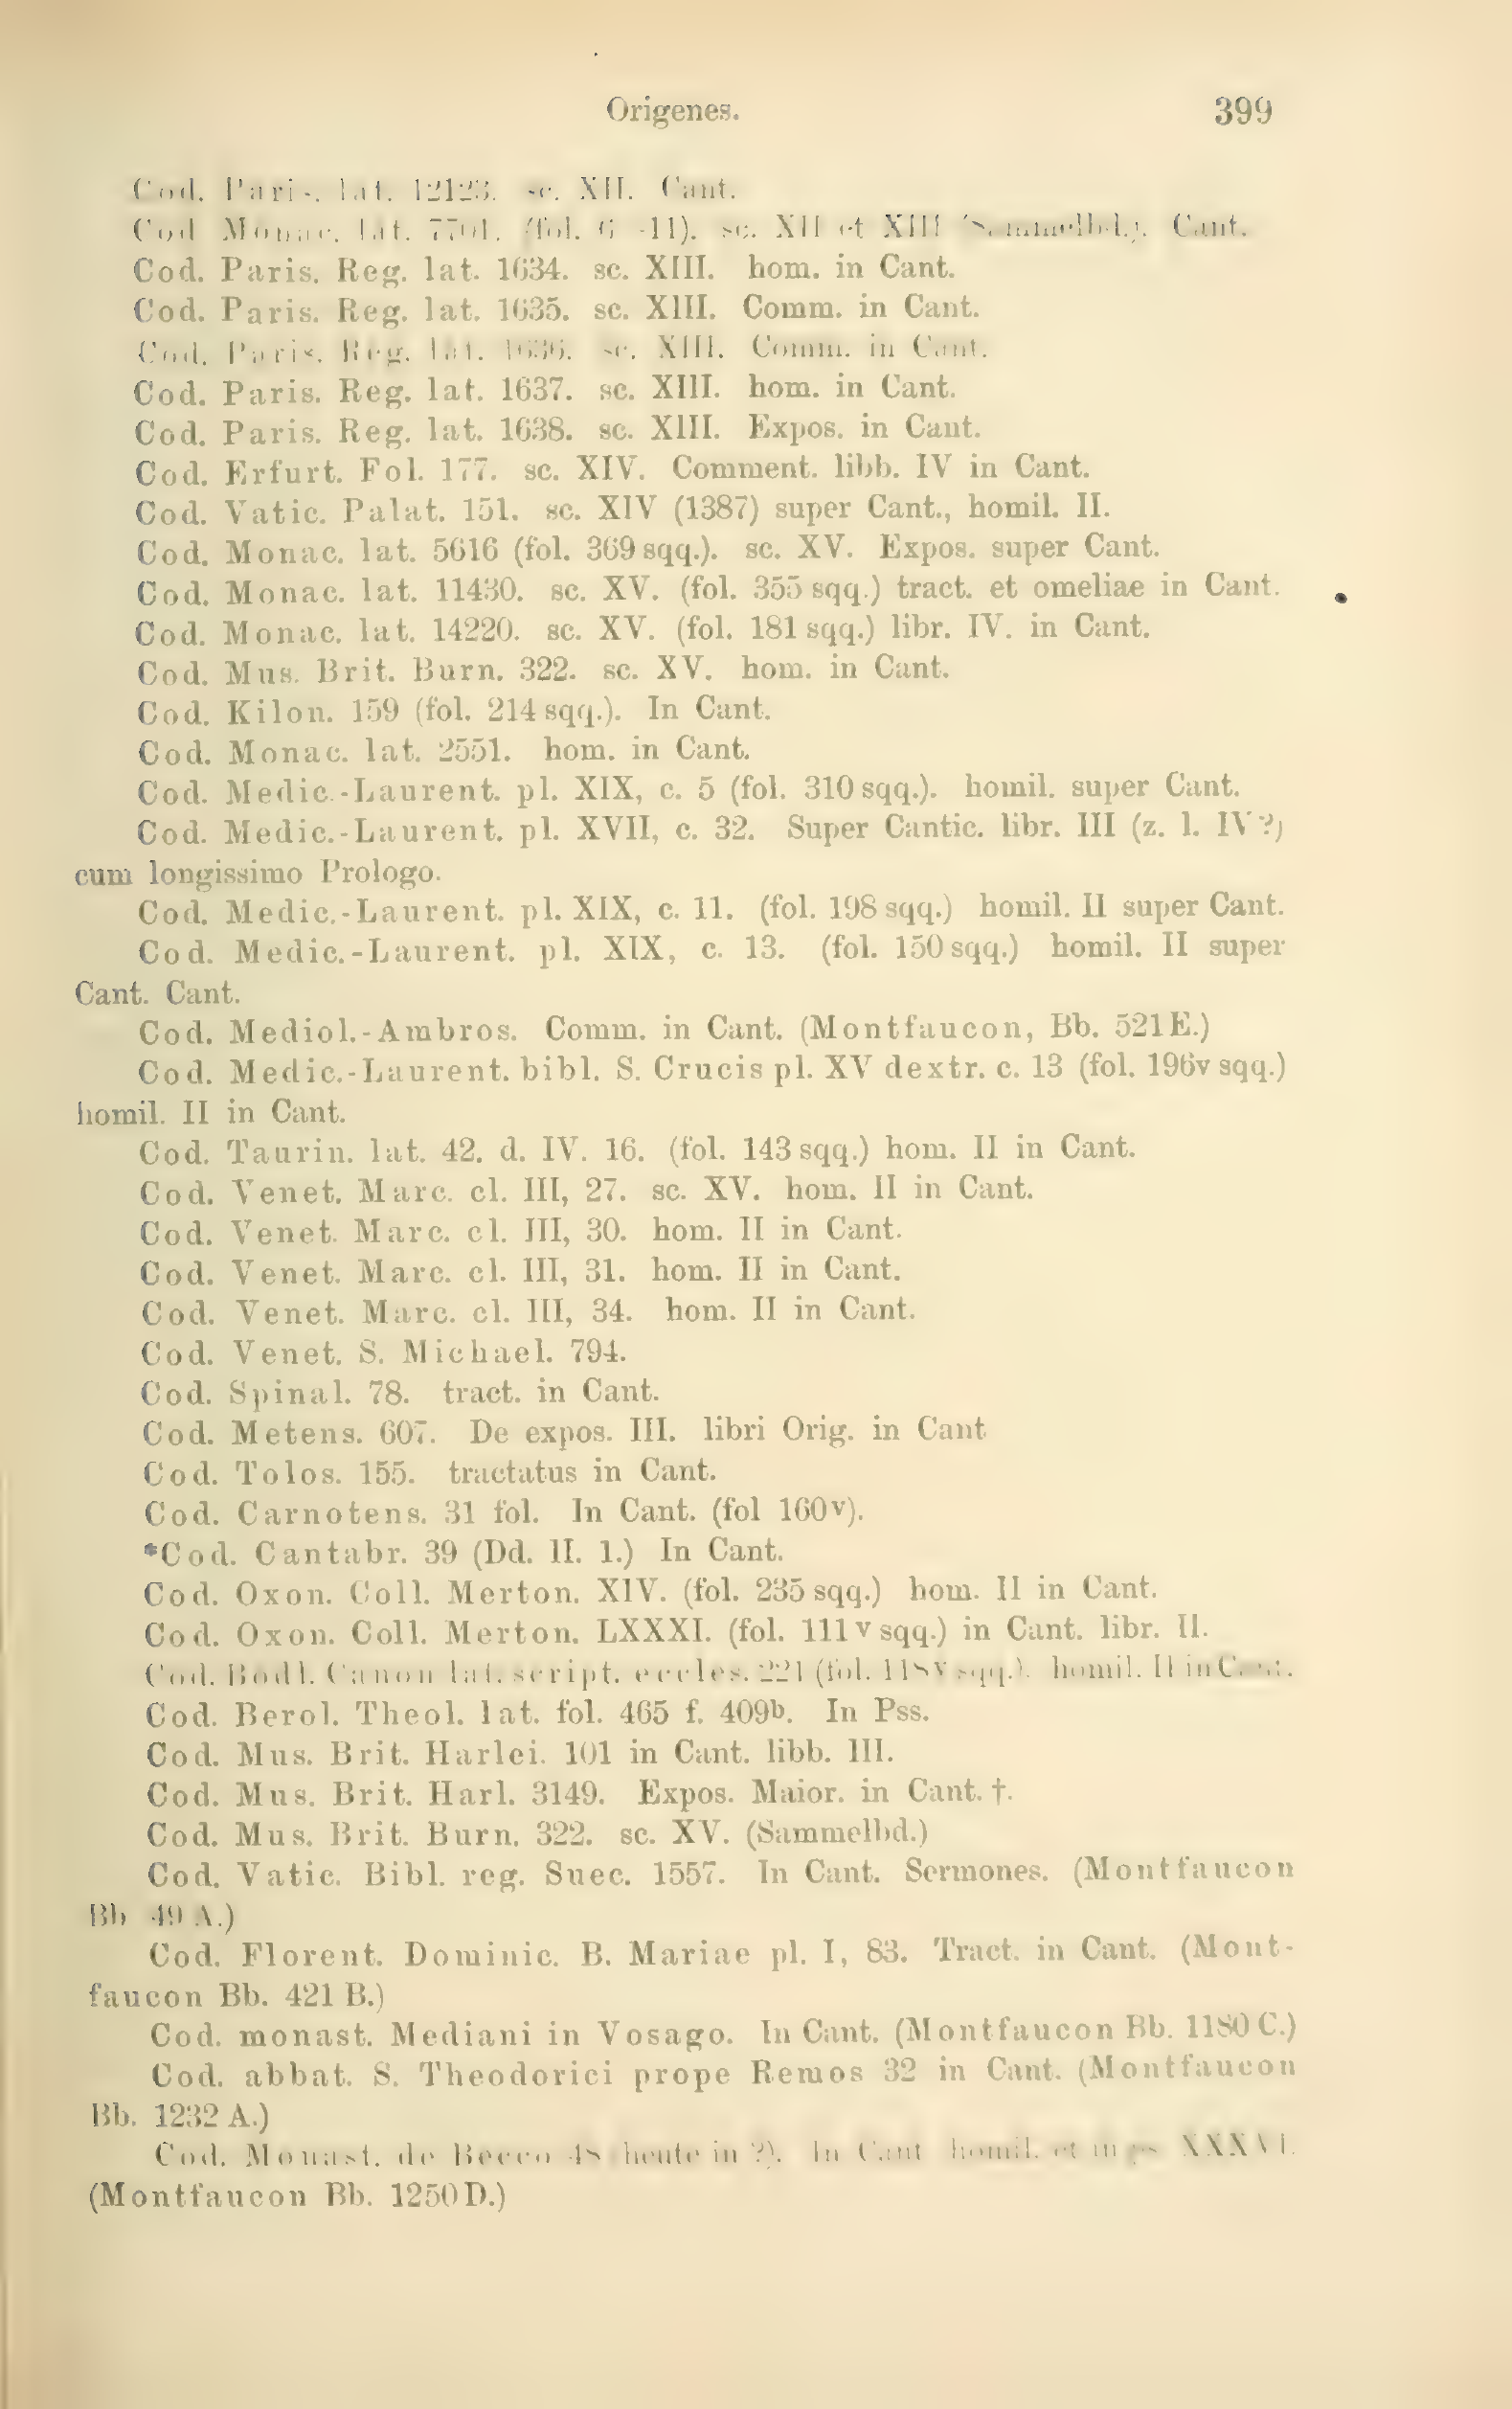 Origenes. 399
Cod. Paris. lat. 12123. sc. XII. Cant.
Cod Monac. lat. 7701. (fol. 6 -11). sc. XII et XIII (Sammelbd.). Cant.
Cod. Paris. Reg. lat. 1634. sc. XIII. hom. in Cant.
Cod. Paris. Reg. lat. 1635. sc. XIII. Comm. in Cant.
Cod. Paris. Reg. lat. 1636. sc. XIII. Comm. in Cant.
Cod. Paris. Reg. lat. 1637. sc. XIII. hom. in Cant.
Cod. Paris. Reg. lat. 1638. sc. XIII. Expos. in Cant.
Cod. Erfurt. Fol. 177. sc. XIV. Comment. libb. IV in Cant.
Cod. Vatic. Palat. 151. sc. XIV (1387) super Cant., homil. II.
Cod. Monac. lat. 5616 (fol. 369 sqq.). sc. XV. Expos. super Cant.
Cod. Monac. lat. 11430. sc. XV. (fol. 355 sqq.) tract. et omeliae in Cant.
Cod. Monac. lat. 14220. sc. XV. (fol. 181 sqq.) libr. IV. in Cant.
Cod. Mus. Brit. Burn. 322. sc. XV. hom. in Cant.
Cod. Kilon. 159 (fol. 214 sqq.). In Cant.
Cod. Monac. lat. 2551. hom. in Cant.
Cod. Medic.-Laurent. pl. XIX, c. 5 (fol. 310 sqq.). homil. super Cant.
Cod. Medic.-Laurent. pl. XVII, c. 32. Super Cantic. libr. III (z. l. IV?)
cum longissimo Prologo.
Cod. Medic.-Laurent. pl. XIX, c. 11. (fol. 198 sqq.) homil. II super Cant.
Cod. Medic.-Laurent. pl. XIX, c. 13. (fol. 150 sqq.) homil. II super
Cant. Cant.
Cod. Mediol.-Ambros. Comm. in Cant. (Montfaucon, Bb. 521 E.)
Cod. Medic.-Laurent. bibl. S. Crucis pl. XV dextr. c. 13 (fol. 196v sqq.)
homil. II in Cant.
Cod. Taurin. lat. 42. d. IV. 16. (fol. 143 sqq.) hom. II in Cant.
Cod. Venet. Marc. cl. III, 27. sc. XV. hom. II in Cant.
Cod. Venet. Marc. cl. III, 30. hom. II in Cant.
Cod. Venet. Marc. cl. III, 31. hom. II in Cant.
Cod. Venet. Marc. cl. III, 34. hom. II in Cant.
Cod. Venet. S. Michael. 794.
Cod. Spinal. 78. tract. in Cant.
Cod. Metens. 607. De expos. III. libri Orig. in Cant
Cod. Tolos. 155. tractatus in Cant.
Cod. Carnotens. 31 fol. In Cant. (fol 160v).
*Cod. Cantabr. 39 (Dd. II. 1.) In Cant.
Cod. Oxon. Coll. Merton. XIV. (fol. 235 sqq.) hom. II in Cant.
Cod. Oxon. Coll. Merton. LXXXI. (fol. 111v sqq.) in Cant. libr. II.
Cod. Bodl. Canon lat. script. eccles. 221 (fol. 118v sqq.). homil. II in Cant.
Cod. Berol. Theol. lat. fol. 465 f. 409b. In Pss.
Cod. Mus. Brit. Harlei. 101 in Cant. libb. III.
Cod. Mus. Brit. Harl. 3149. Expos. Maior. in Cant. †.
Cod. Mus. Brit. Burn. 322. sc. XV. (Sammelbd.)
Cod. Vatic. Bibl. reg. Suec. 1557. In Cant. Sermones. (Montfaucon
Bb 49 A.)
Cod. Florent. Dominic. B. Mariae pl. I, 83. Tract. in Cant. (Mont-
faucon Bb. 421 B.)
Cod. monast. Mediani in Vosago. In Cant. (Montfaucon Bb. 1180 C.)
Cod. abbat. S. Theodorici prope Remos 32 in Cant. (Montfaucon
Bb. 1232 A.)
Cod. Monast. de Becco 48 heute in ?). In Cant homil. et in ps XXXVI.
(Montfaucon Bb. 1250 D.)